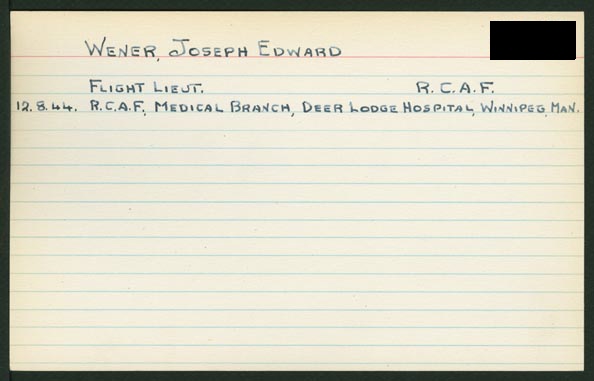 WENER, JOSEPH EDWARD
FLIGHT LIEUT. R.C.A.F.
12.8.44. R.C.A.F. MEDICAL BRANCH, DEER LODGE HOSPITAL, WINNIPEG, MAN.